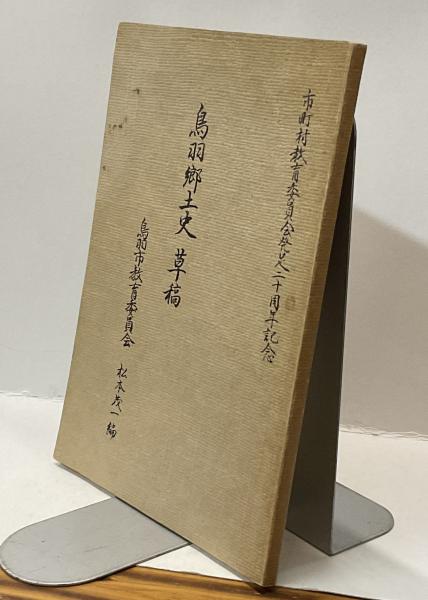 市町村教育委員会発足二十周年記念
鳥羽郷土史 草稿
鳥羽市教育委員会 松本茂一編